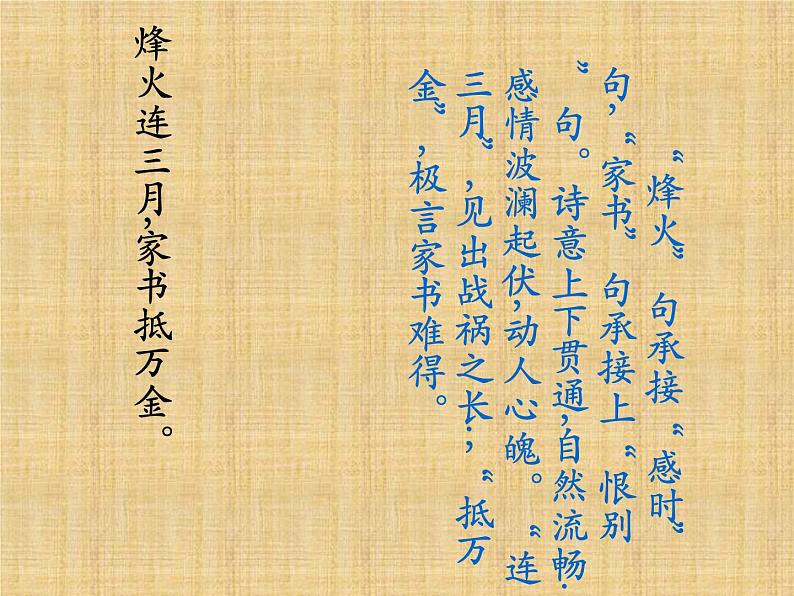 “烽火”句承接“感时”
句,“家书”句承接上“恨别
”句。诗意上下贯通,自然流畅;
感情波澜起伏,动人心魄。“连
三月”,见出战祸之长;“抵万
金”,极言家书难得。
烽火连三月,家书抵万金。